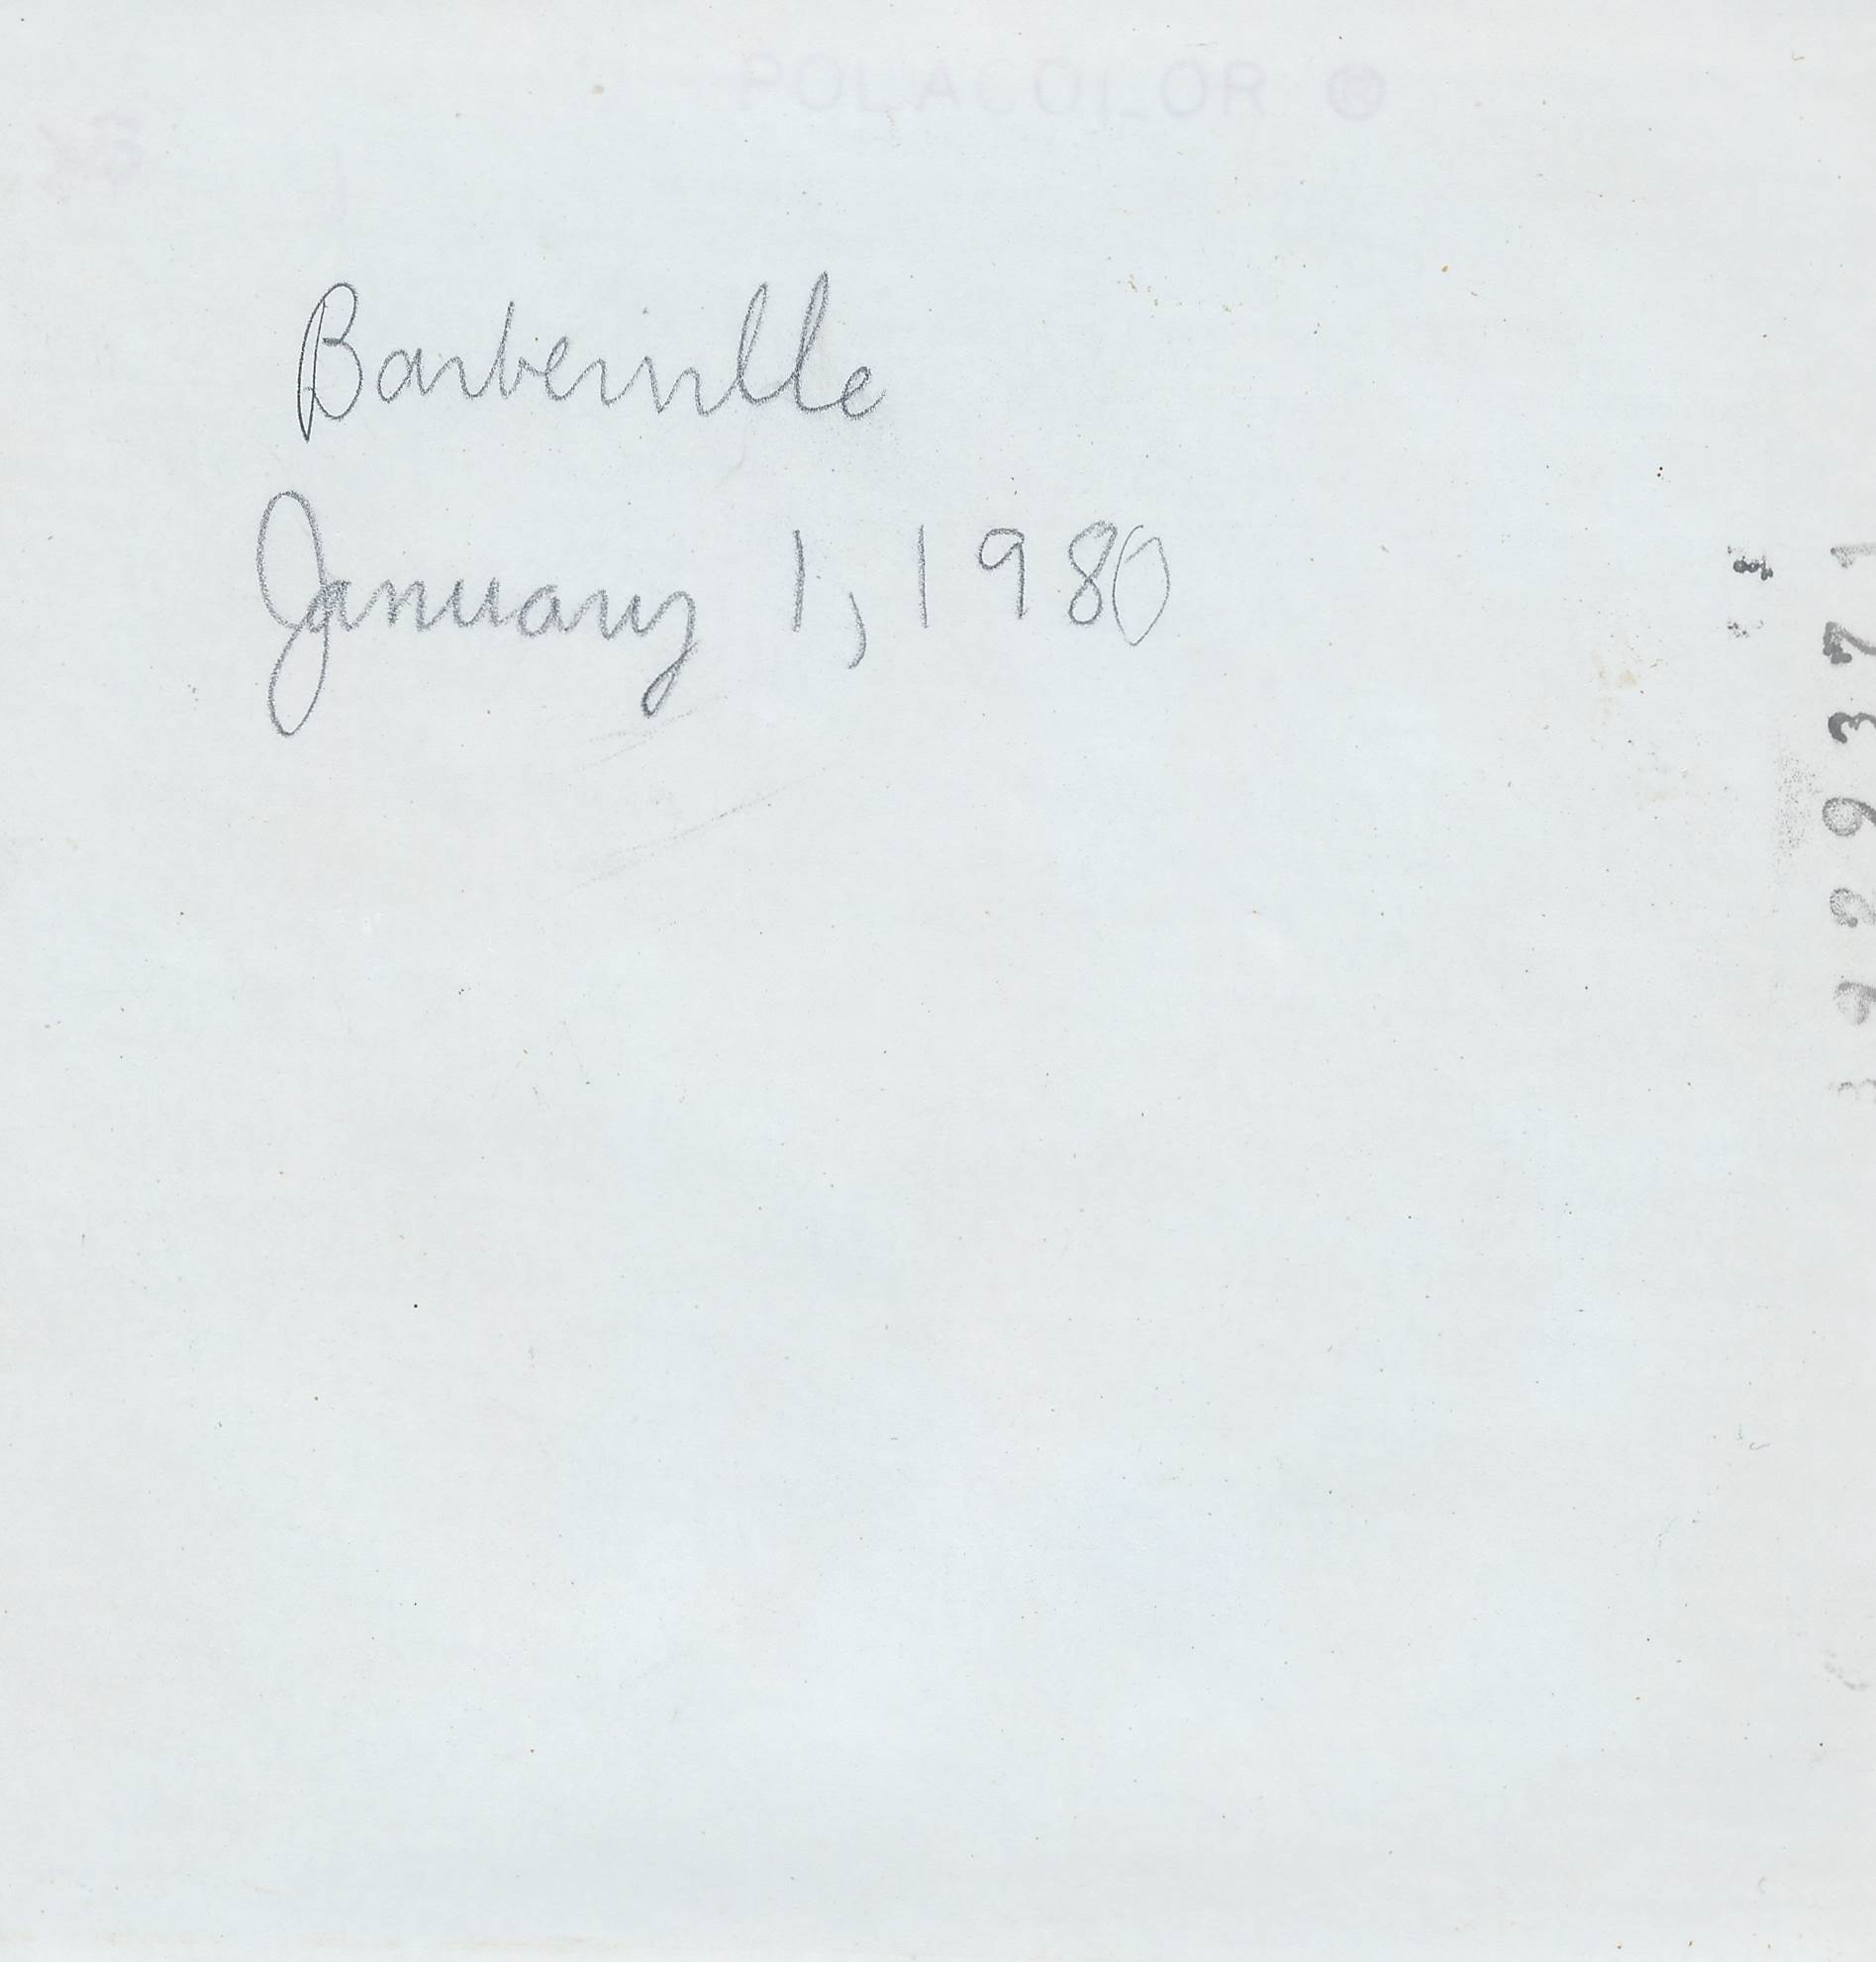 POLACOLOR ®
Barberville
January 1, 1980